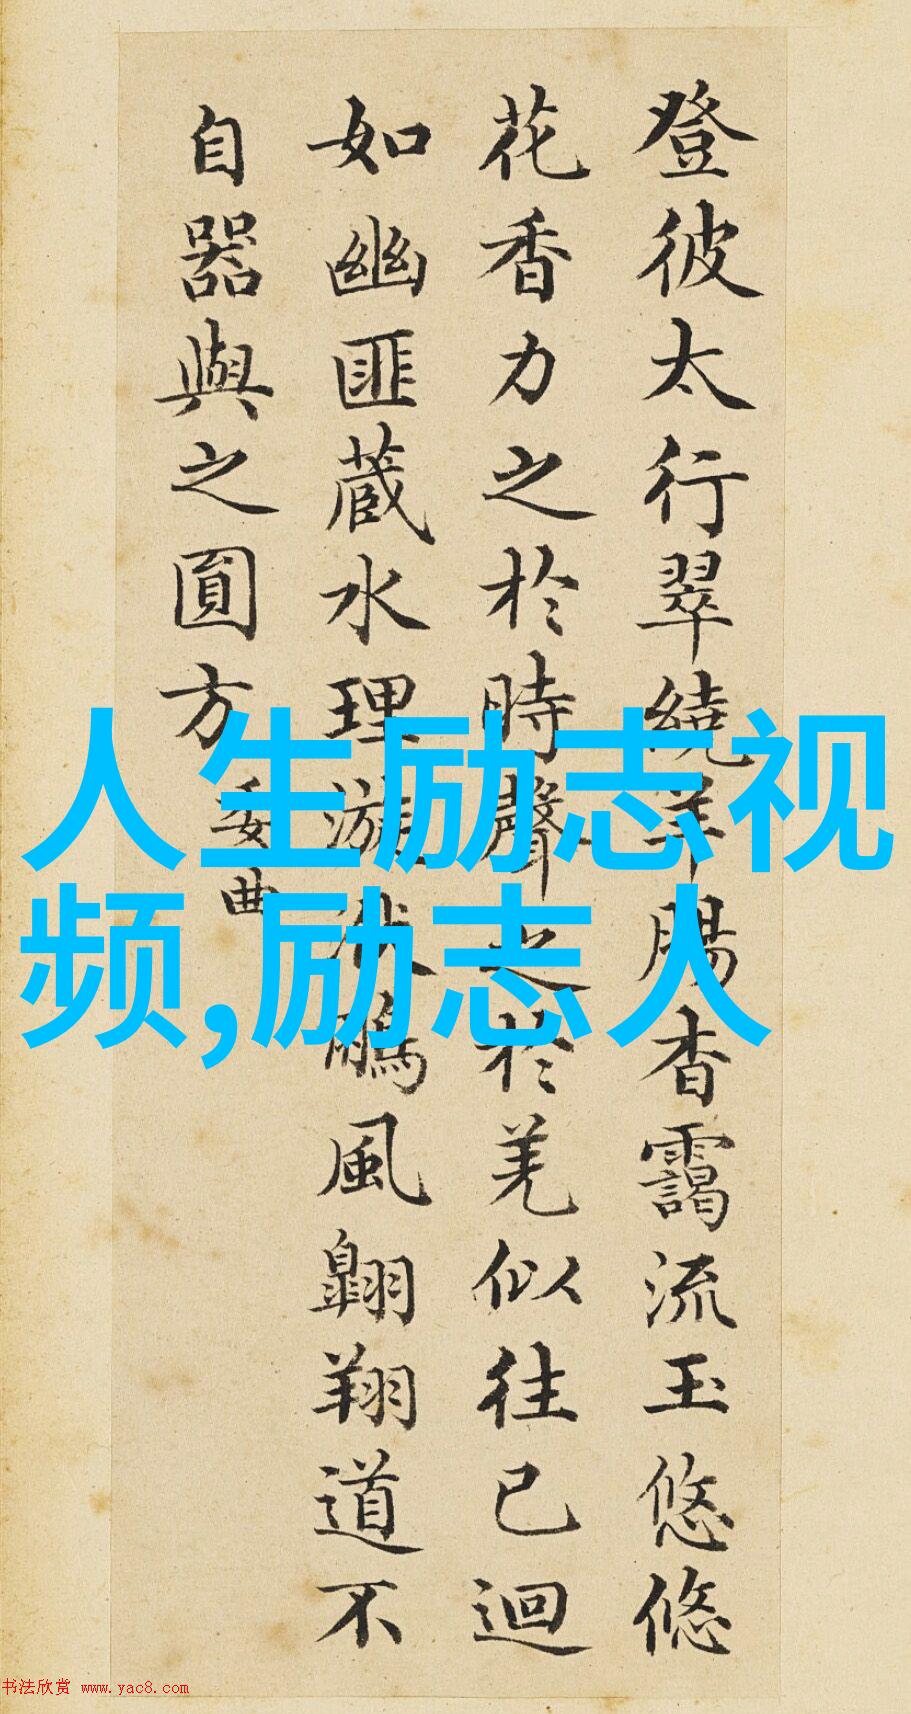 登彼太行翠繞羊腸杳靄流玉悠悠
花香力之於時聲之於羌似往已迴
如幽匪蔵水理漩洑鵬風翺翔道不
自器與之圓方
委曲
人生励志视
频,励志人
书法欣赏 www.yac8.com